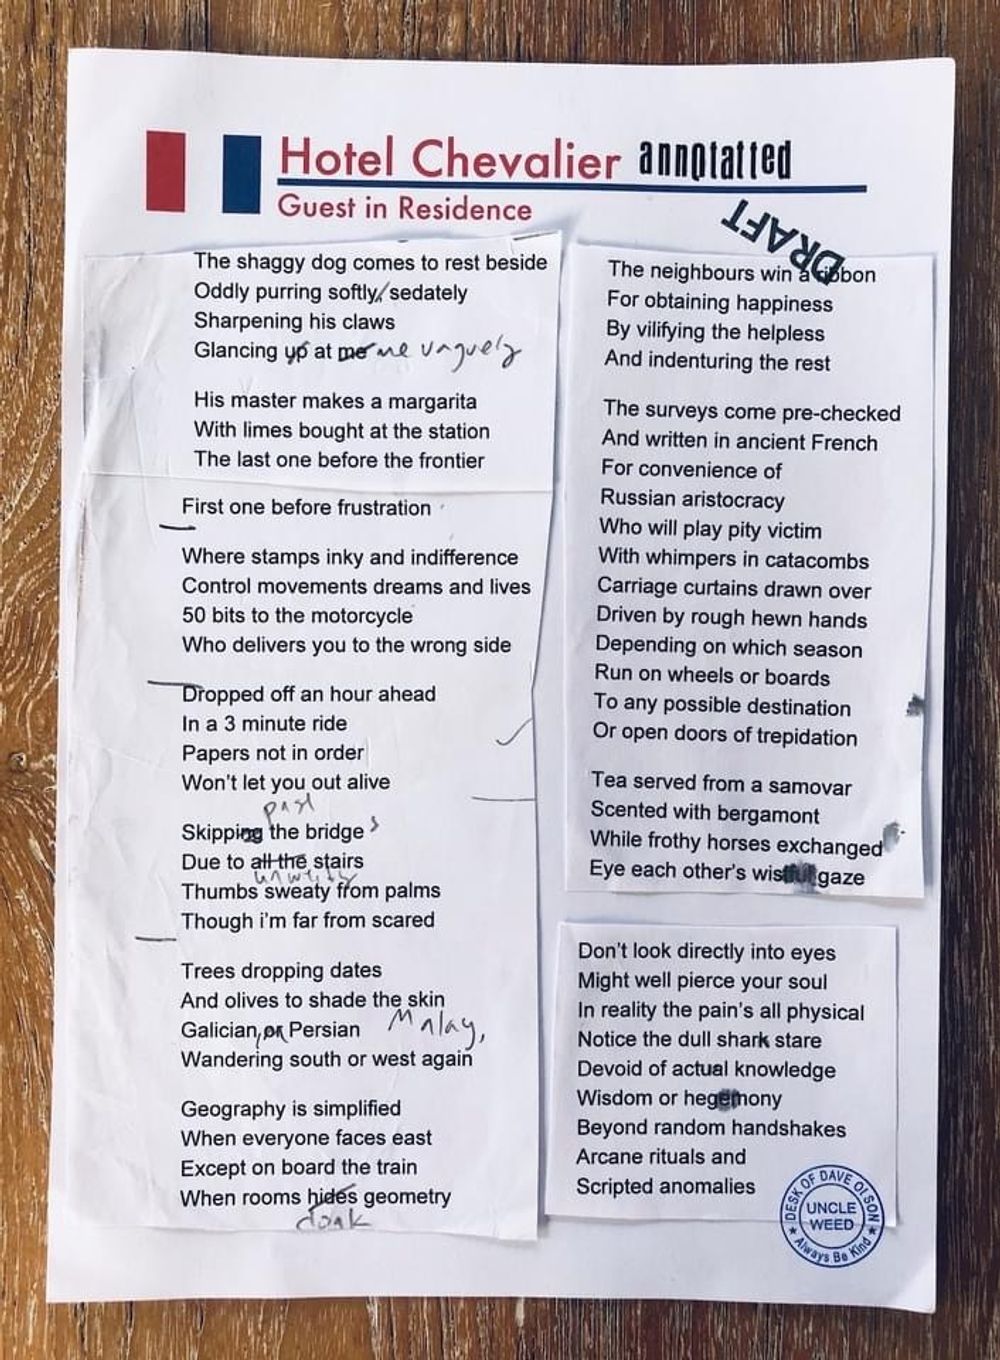 Hotel Chevalier annotatted
Guest in Residence
DRAFT
The shaggy dog comes to rest beside
Oddly purring softly, sedately
Sharpening his claws
Glancing up at me me vaguely
His master makes a margarita
With limes bought at the station
The last one before the frontier
First one before frustration
Where stamps inky and indifference
Control movements dreams and lives
50 bits to the motorcycle
Who delivers you to the wrong side
Dropped off an hour ahead
In a 3 minute ride
Papers not in order
Won't let you out alive
past
Skipping the bridges
Due to all the stairs
Thumbs sweaty from palms
Though i'm far from scared
Trees dropping dates
And olives to shade the skin
Galician, or Persian Malay,
Wandering south or west again
Geography is simplified
When everyone faces east
Except on board the train
When rooms hides geometry
cloak
The neighbours win a ribbon
For obtaining happiness
By vilifying the helpless
And indenturing the rest
The surveys come pre-checked
And written in ancient French
For convenience of
Russian aristocracy
Who will play pity victim
With whimpers in catacombs
Carriage curtains drawn over
Driven by rough hewn hands
Depending on which season
Run on wheels or boards
To any possible destination
Or open doors of trepidation
Tea served from a samovar
Scented with bergamont
While frothy horses exchanged
Eye each other's wistful gaze
Don't look directly into eyes
Might well pierce your soul
In reality the pain's all physical
Notice the dull shark stare
Devoid of actual knowledge
Wisdom or hegemony
Beyond random handshakes
Arcane rituals and
Scripted anomalies
DESK OF DAVE OLSON
UNCLE
WEED
Always Be Kind